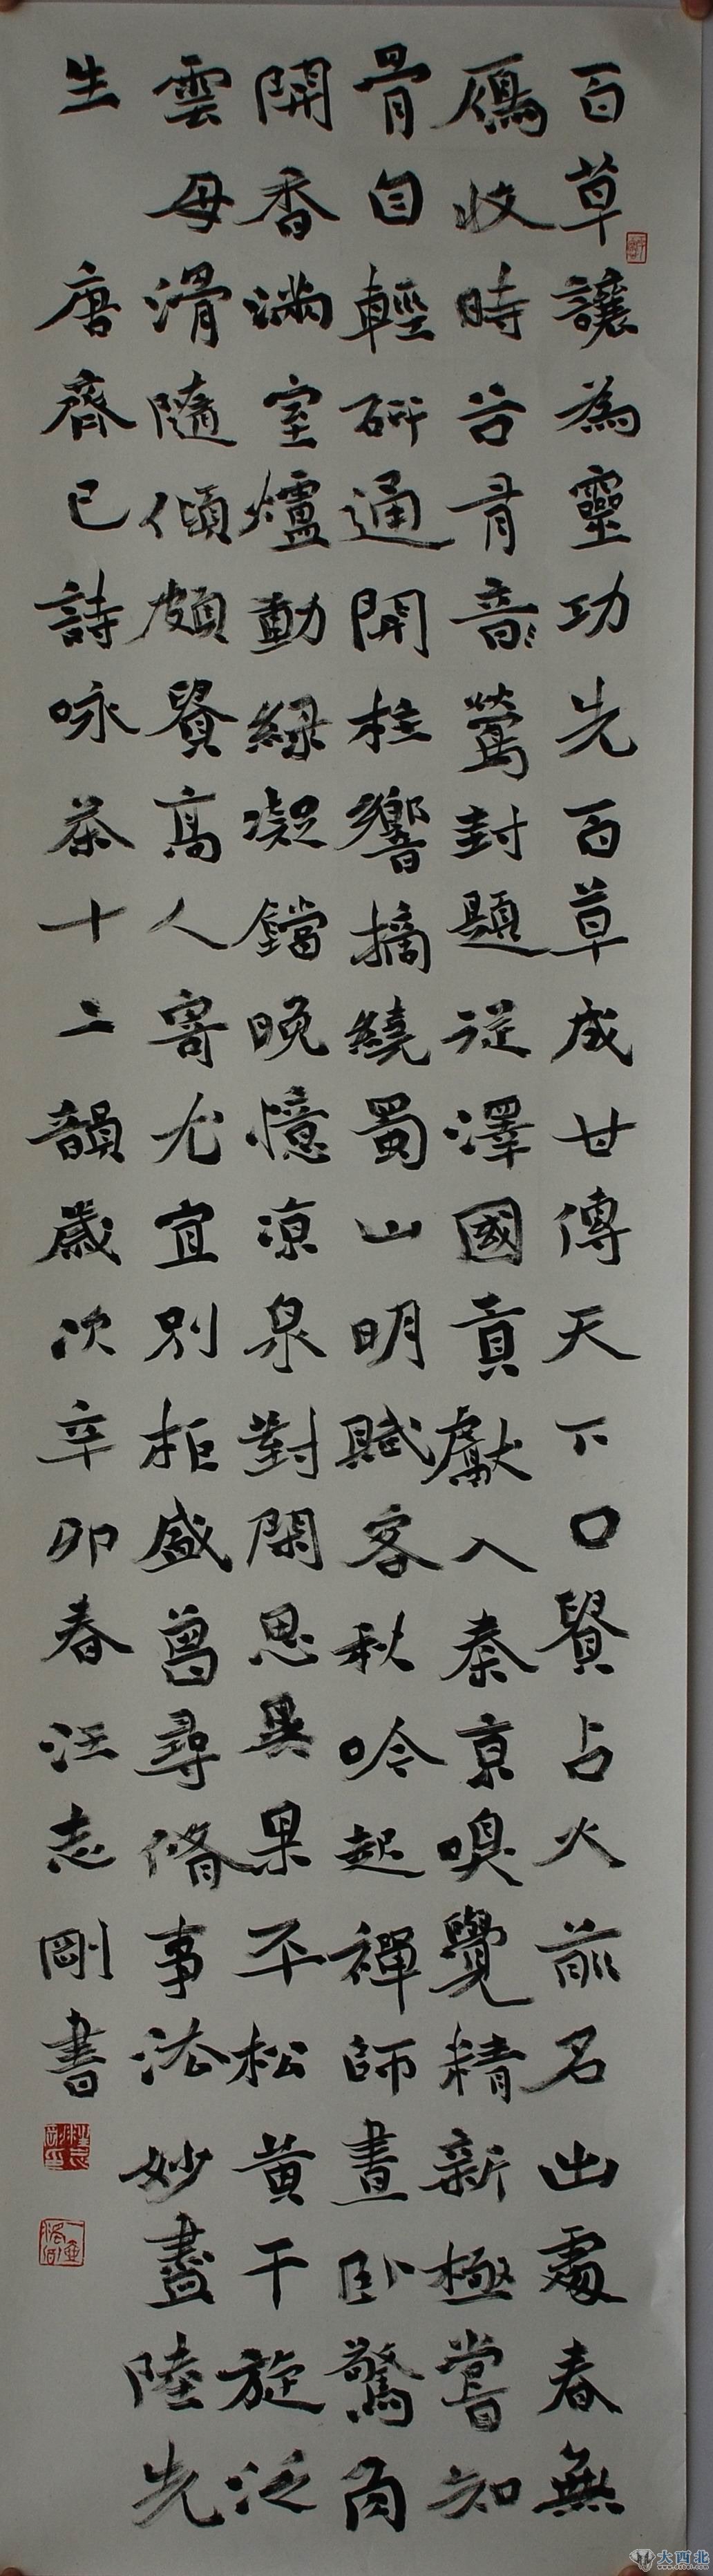 百草讓為靈功先百草成甘傳天下口貴占火前名出處春無
鴈收時谷有音鶯封題從澤國貢獻入秦京嗅覺精新極嘗知
骨自輕研通開柱響摘繞蜀山明賦客秋吟起禪師晝臥驚角
開香滿室爐動緑凝鐺晚憶凉泉對閑思異果平松黄干旋泛
雲母滑隨傾頗貴高人寄尤宜別柜盛曾尋脩事法妙盡陸先
生 唐齊已詩咏茶十二韻歲次辛卯春汪志剛書
大西北